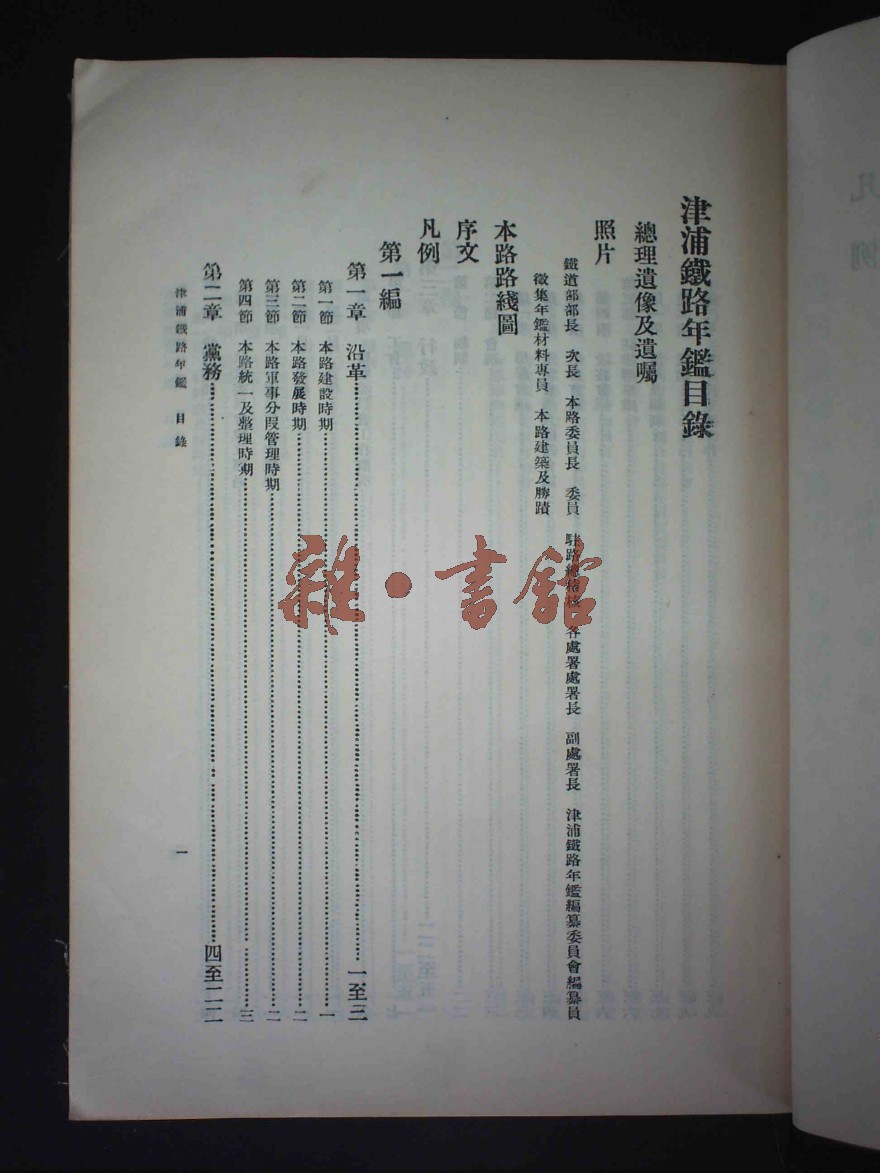 津浦鐵路年鑑目錄
總理遺像及遺囑
照片
鐵道部部長　次長　本路委員長　委員　駐路總稽核　各處署處署長　副處署長　津浦鐵路年鑑編纂委員會編纂員
徵集年鑑材料專員　本路建築及勝蹟
本路路綫圖
序文
凡例
第一編
第一章　沿革……一至三
第一節　本路建設時期……一
第二節　本路發展時期……二
第三節　本路軍事分段管理時期……二
第四節　本路統一及整理時期……三
第二章　黨務……四至二二
津浦鐵路年鑑　目錄
一
雜·書館